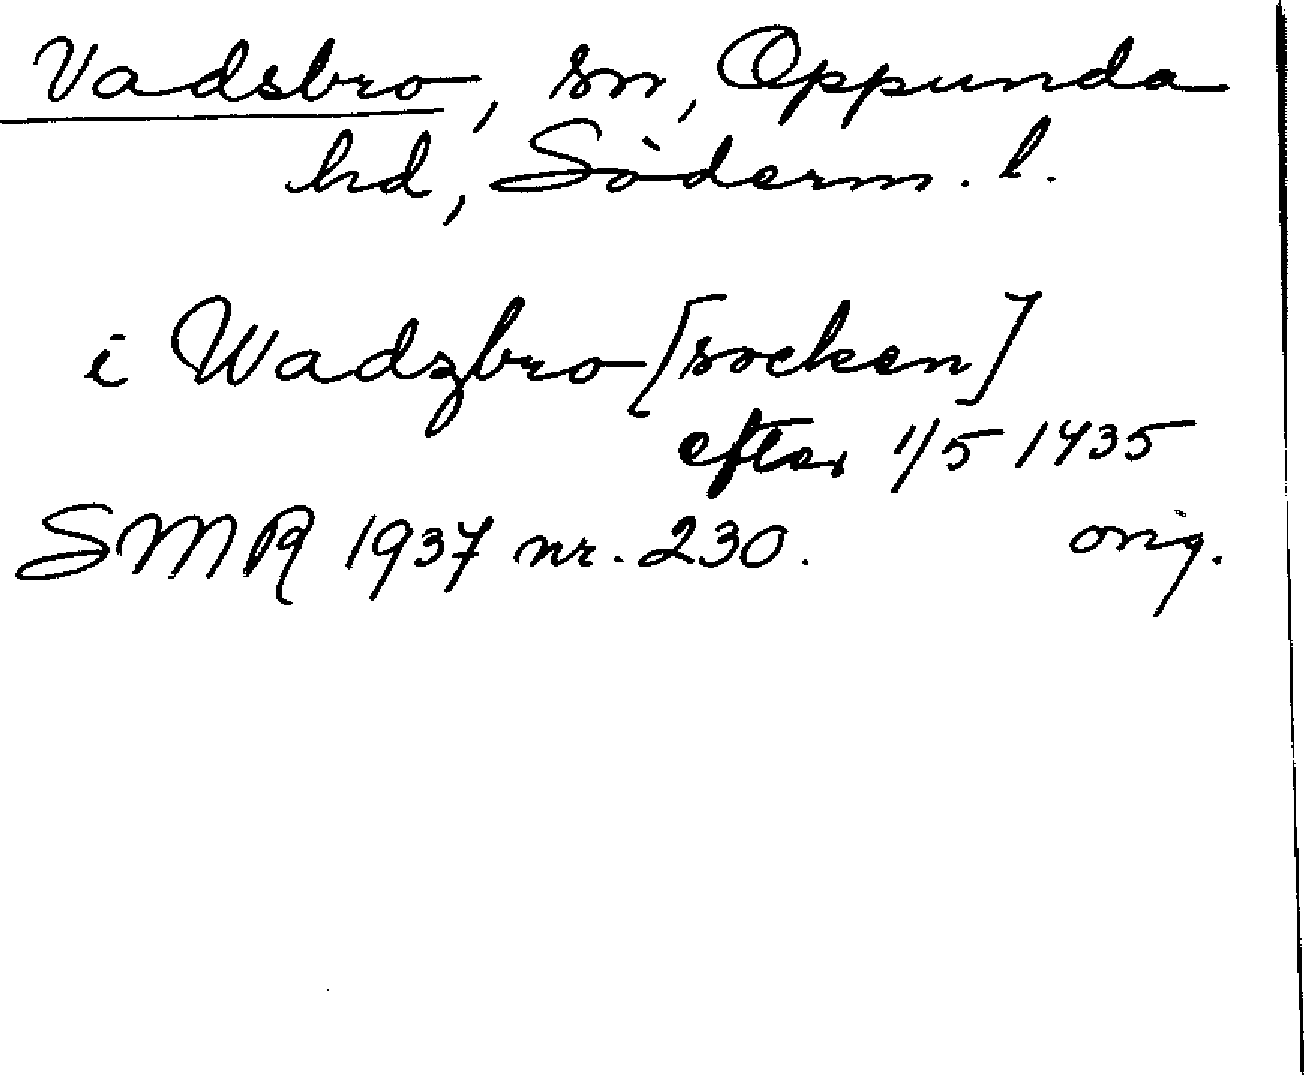 Vadsbro, sn, Oppunda
hd, Söderm. l.
i Wadzbro [socken]
efter 1/5 1435
SMR 1937 nr. 230. orig.